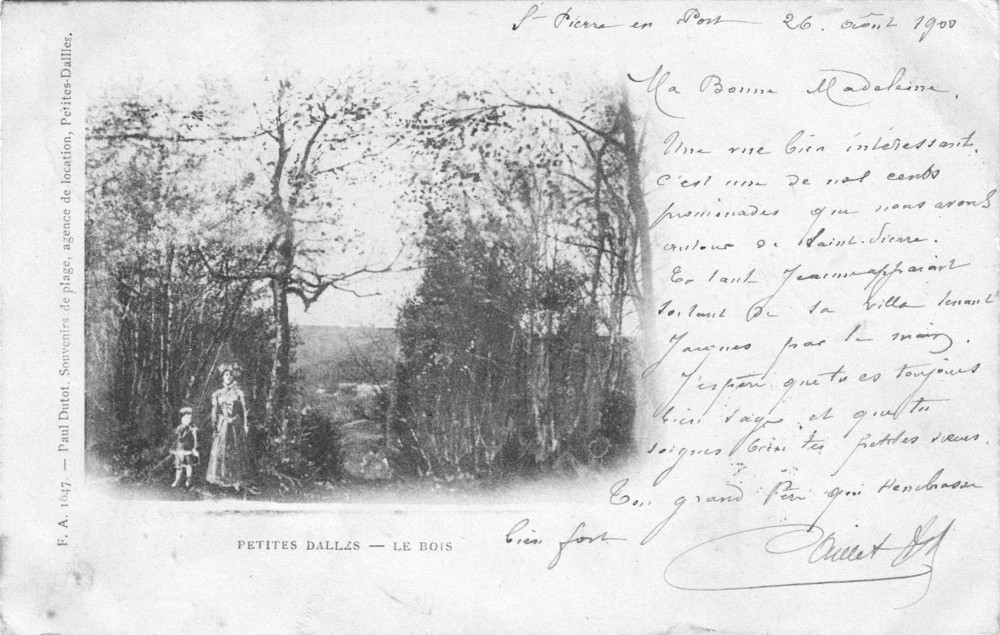 St Pierre en Port 26. août 1900
Ma Bonne Madeleine.
Une vue bien intéressant.
c'est une de nos cents
promenades que nous avons
autour de Saint-Pierre.
Ta tant Jeanne apparait
sortant de sa villa tenant
Jacques par la main.
J'espère que tu es toujours
bien sage et que tu
soignes bien tes petites sœurs.
Ton grand Père qui t'embrasse
bien fort.
PETITES DALLES — LE BOIS
F. A. 1647. — Paul Dutot. Souvenirs de plage, agence de location, Petites-Dallles.